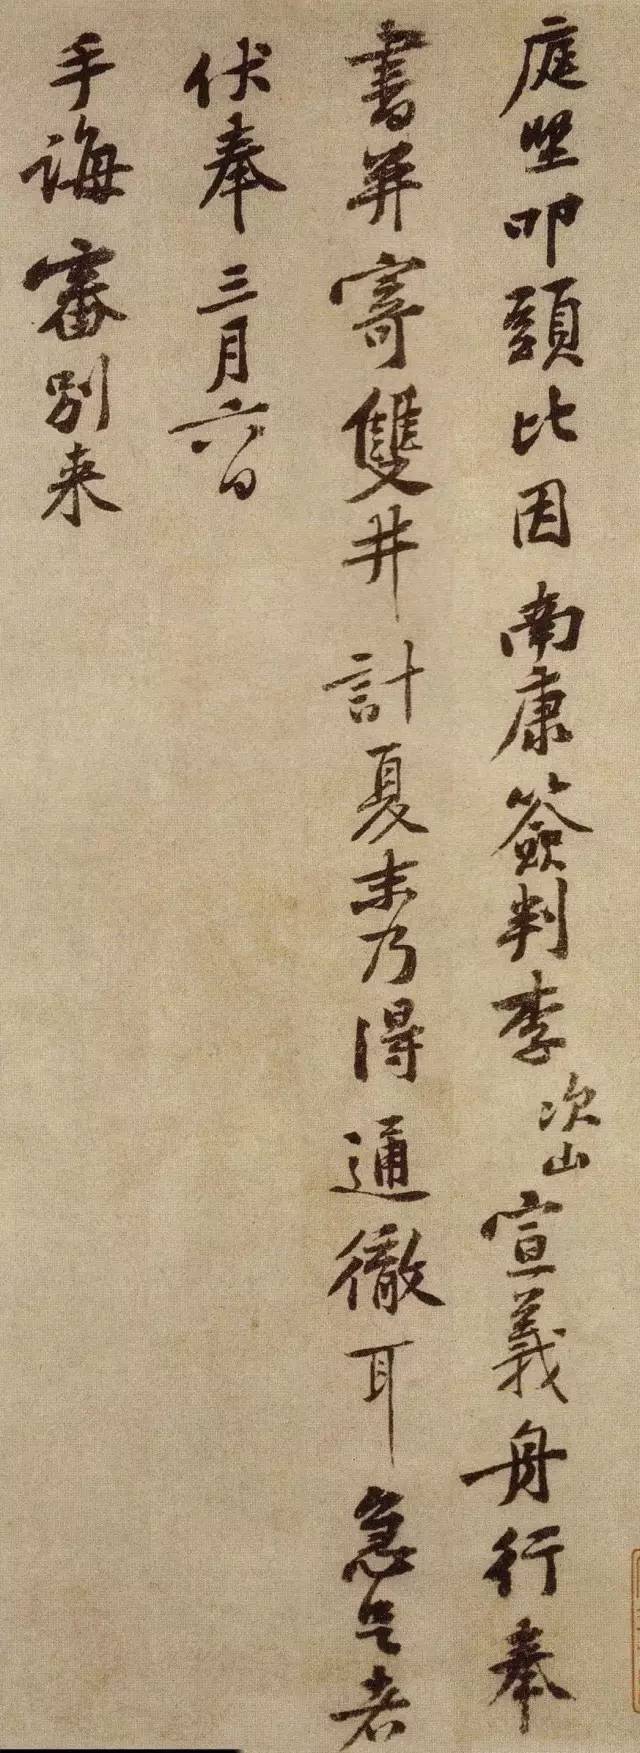 庭堅叩頭比因南康簽判李次山宣義舟行奉
書并寄雙井計夏末乃得通徹耳急足者
伏奉三月六日
手誨審別来